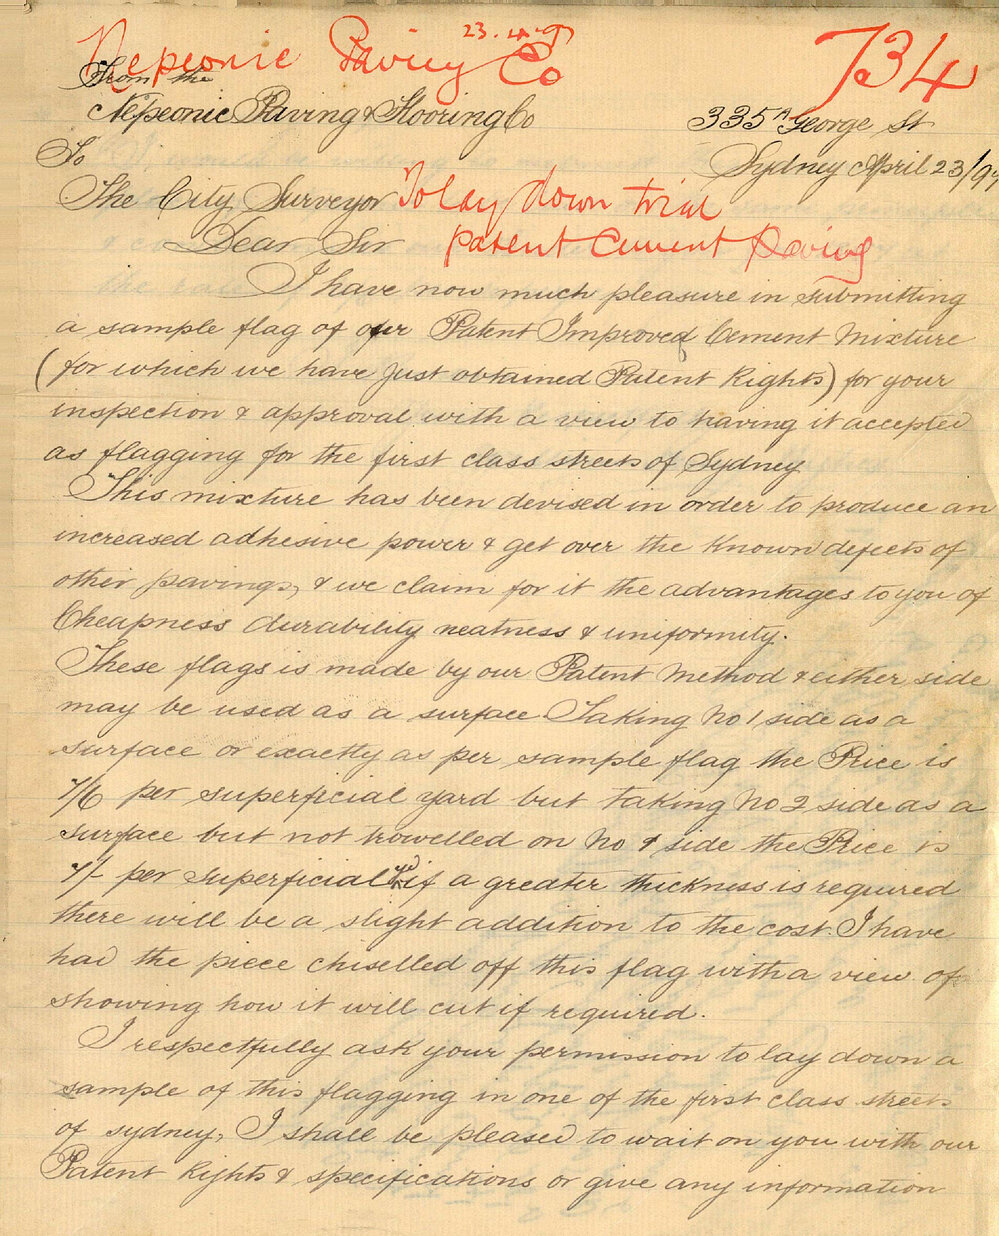 23.4.97
Nepeonic Paving Co
734
From the
Nepeonic Paving & Flooring Co
335A George St
To
Sydney April 23/97
The City Surveyor
To lay down trial
Dear Sir
patent cement paving
I have now much pleasure in submitting
a sample flag of our Patent Improved Cement Mixture
(for which we have just obtained Patent Rights) for your
inspection & approval with a view to having it accepted
as flagging for the first class streets of Sydney
This mixture has been devised in order to produce an
increased adhesive power & get over the known defects of
other pavings, & we claim for it the advantages to you of
Cheapness durability neatness & uniformity.
These flags is made by our Patent Method & either side
may be used as a surface Taking No 1 side as a
surface or exactly as per sample flag the Price is
7/6 per superficial yard but taking No 2 side as a
surface but not trowelled on No 1 side the Price is
7/- per superficial yd if a greater thickness is required
there will be a slight addition to the cost. I have
had the piece chiselled off this flag with a view of
showing how it will cut if required.
I respectfully ask your permission to lay down a
sample of this flagging in one of the first class streets
of Sydney, I shall be pleased to wait on you with our
Patent Rights & specifications or give any information